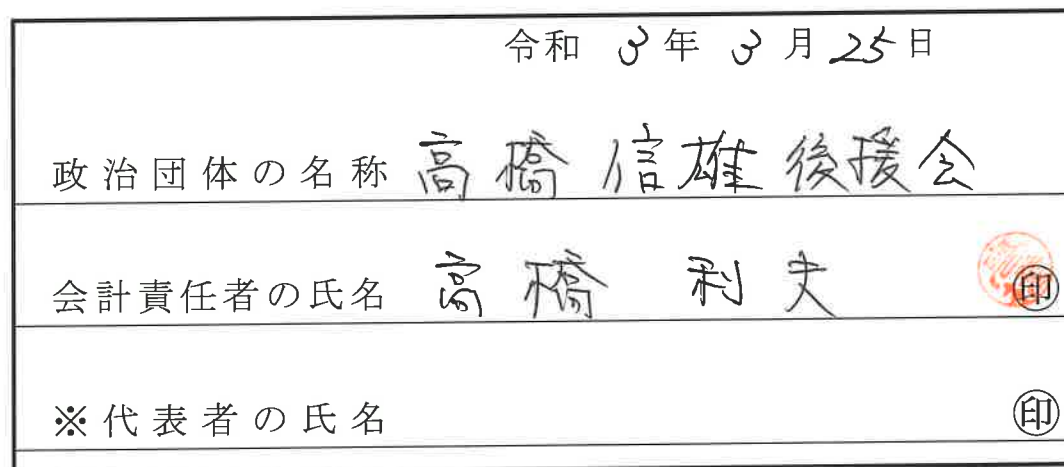 令和 3年 3月25日
政治団体の名称 高橋信雄後援会
会計責任者の氏名 高橋 利夫 ㊞
※代表者の氏名 ㊞